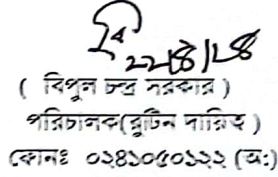 ২২।৪।২৪
( বিপুল চন্দ্র সরকার )
পরিচালক(রুটিন দায়িত্ব )
ফোনঃ ০২৪১০৫০১২২ (অ:)